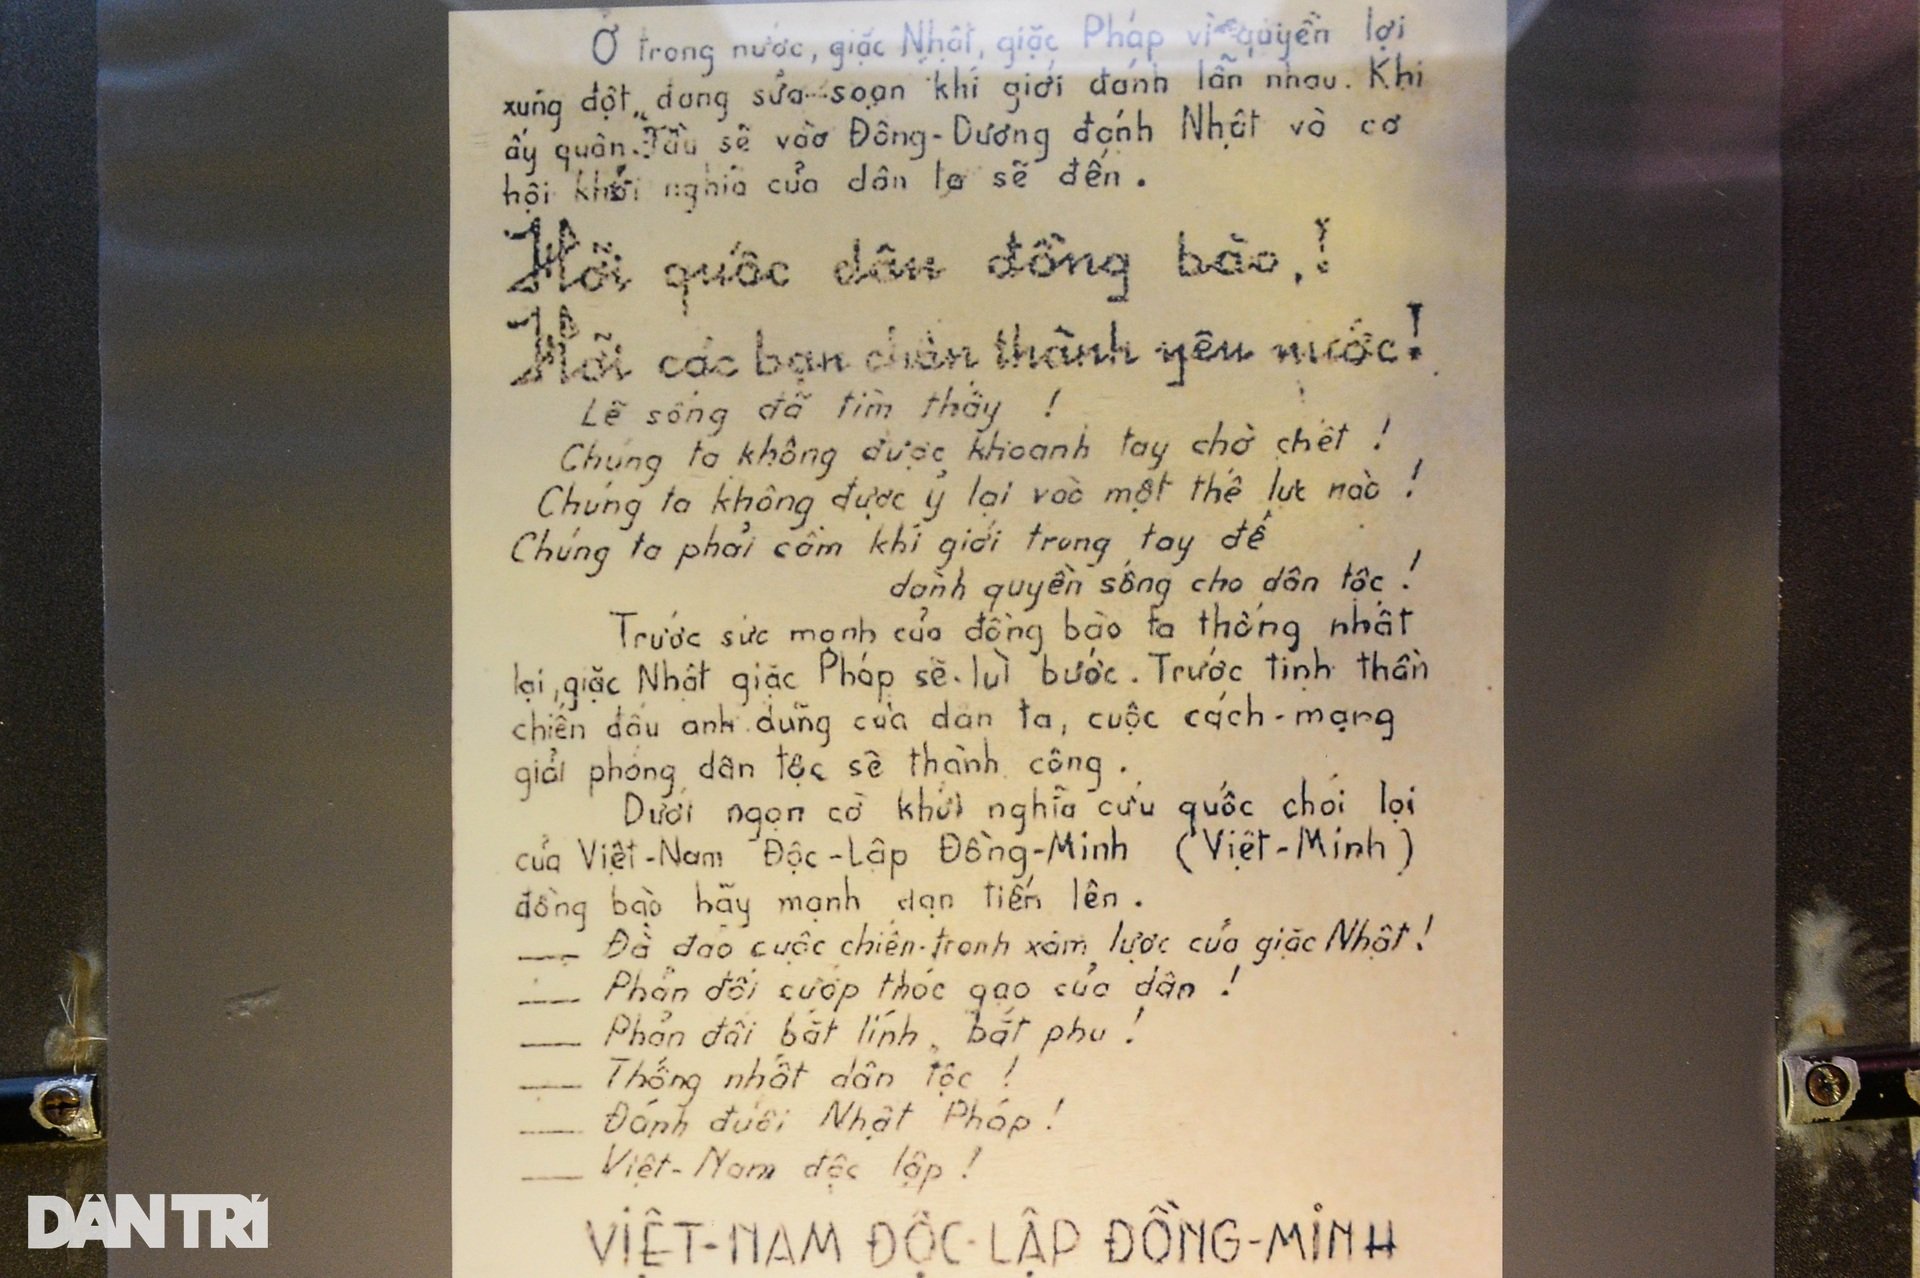 Ở trong nước, giặc Nhật, giặc Pháp vì quyền lợi
xung đột, đang sửa soạn khí giới đánh lẫn nhau. Khi
ấy quân Tầu sẽ vào Đông-Dương đánh Nhật và cơ
hội khởi nghĩa của dân ta sẽ đến.
Hỡi quốc dân đồng bào!
Hỡi các bạn chân thành yêu nước!
Lẽ sống đã tìm thấy !
Chúng ta không được khoanh tay chờ chết !
Chúng ta không được ỷ lại vào một thế lực nào !
Chúng ta phải cầm khí giới trong tay để
dành quyền sống cho dân tộc !
Trước sức mạnh của đồng bào ta thống nhất
lại, giặc Nhật giặc Pháp sẽ lùi bước. Trước tinh thần
chiến đấu anh dũng của dân ta, cuộc cách-mạng
giải phóng dân tộc sẽ thành công.
Dưới ngọn cờ khởi nghĩa cứu quốc chói lọi
của Việt-Nam Độc-Lập Đồng-Minh (Việt-Minh)
đồng bào hãy mạnh dạn tiến lên.
— Đả đảo cuộc chiến-tranh xâm lược của giặc Nhật!
— Phản đối cướp thóc gạo của dân !
— Phản đối bắt lính, bắt phu !
— Thống nhất dân tộc !
— Đánh đuổi Nhật Pháp !
— Việt-Nam độc lập !
VIỆT-NAM ĐỘC-LẬP ĐỒNG-MINH
DÂN TRÍ